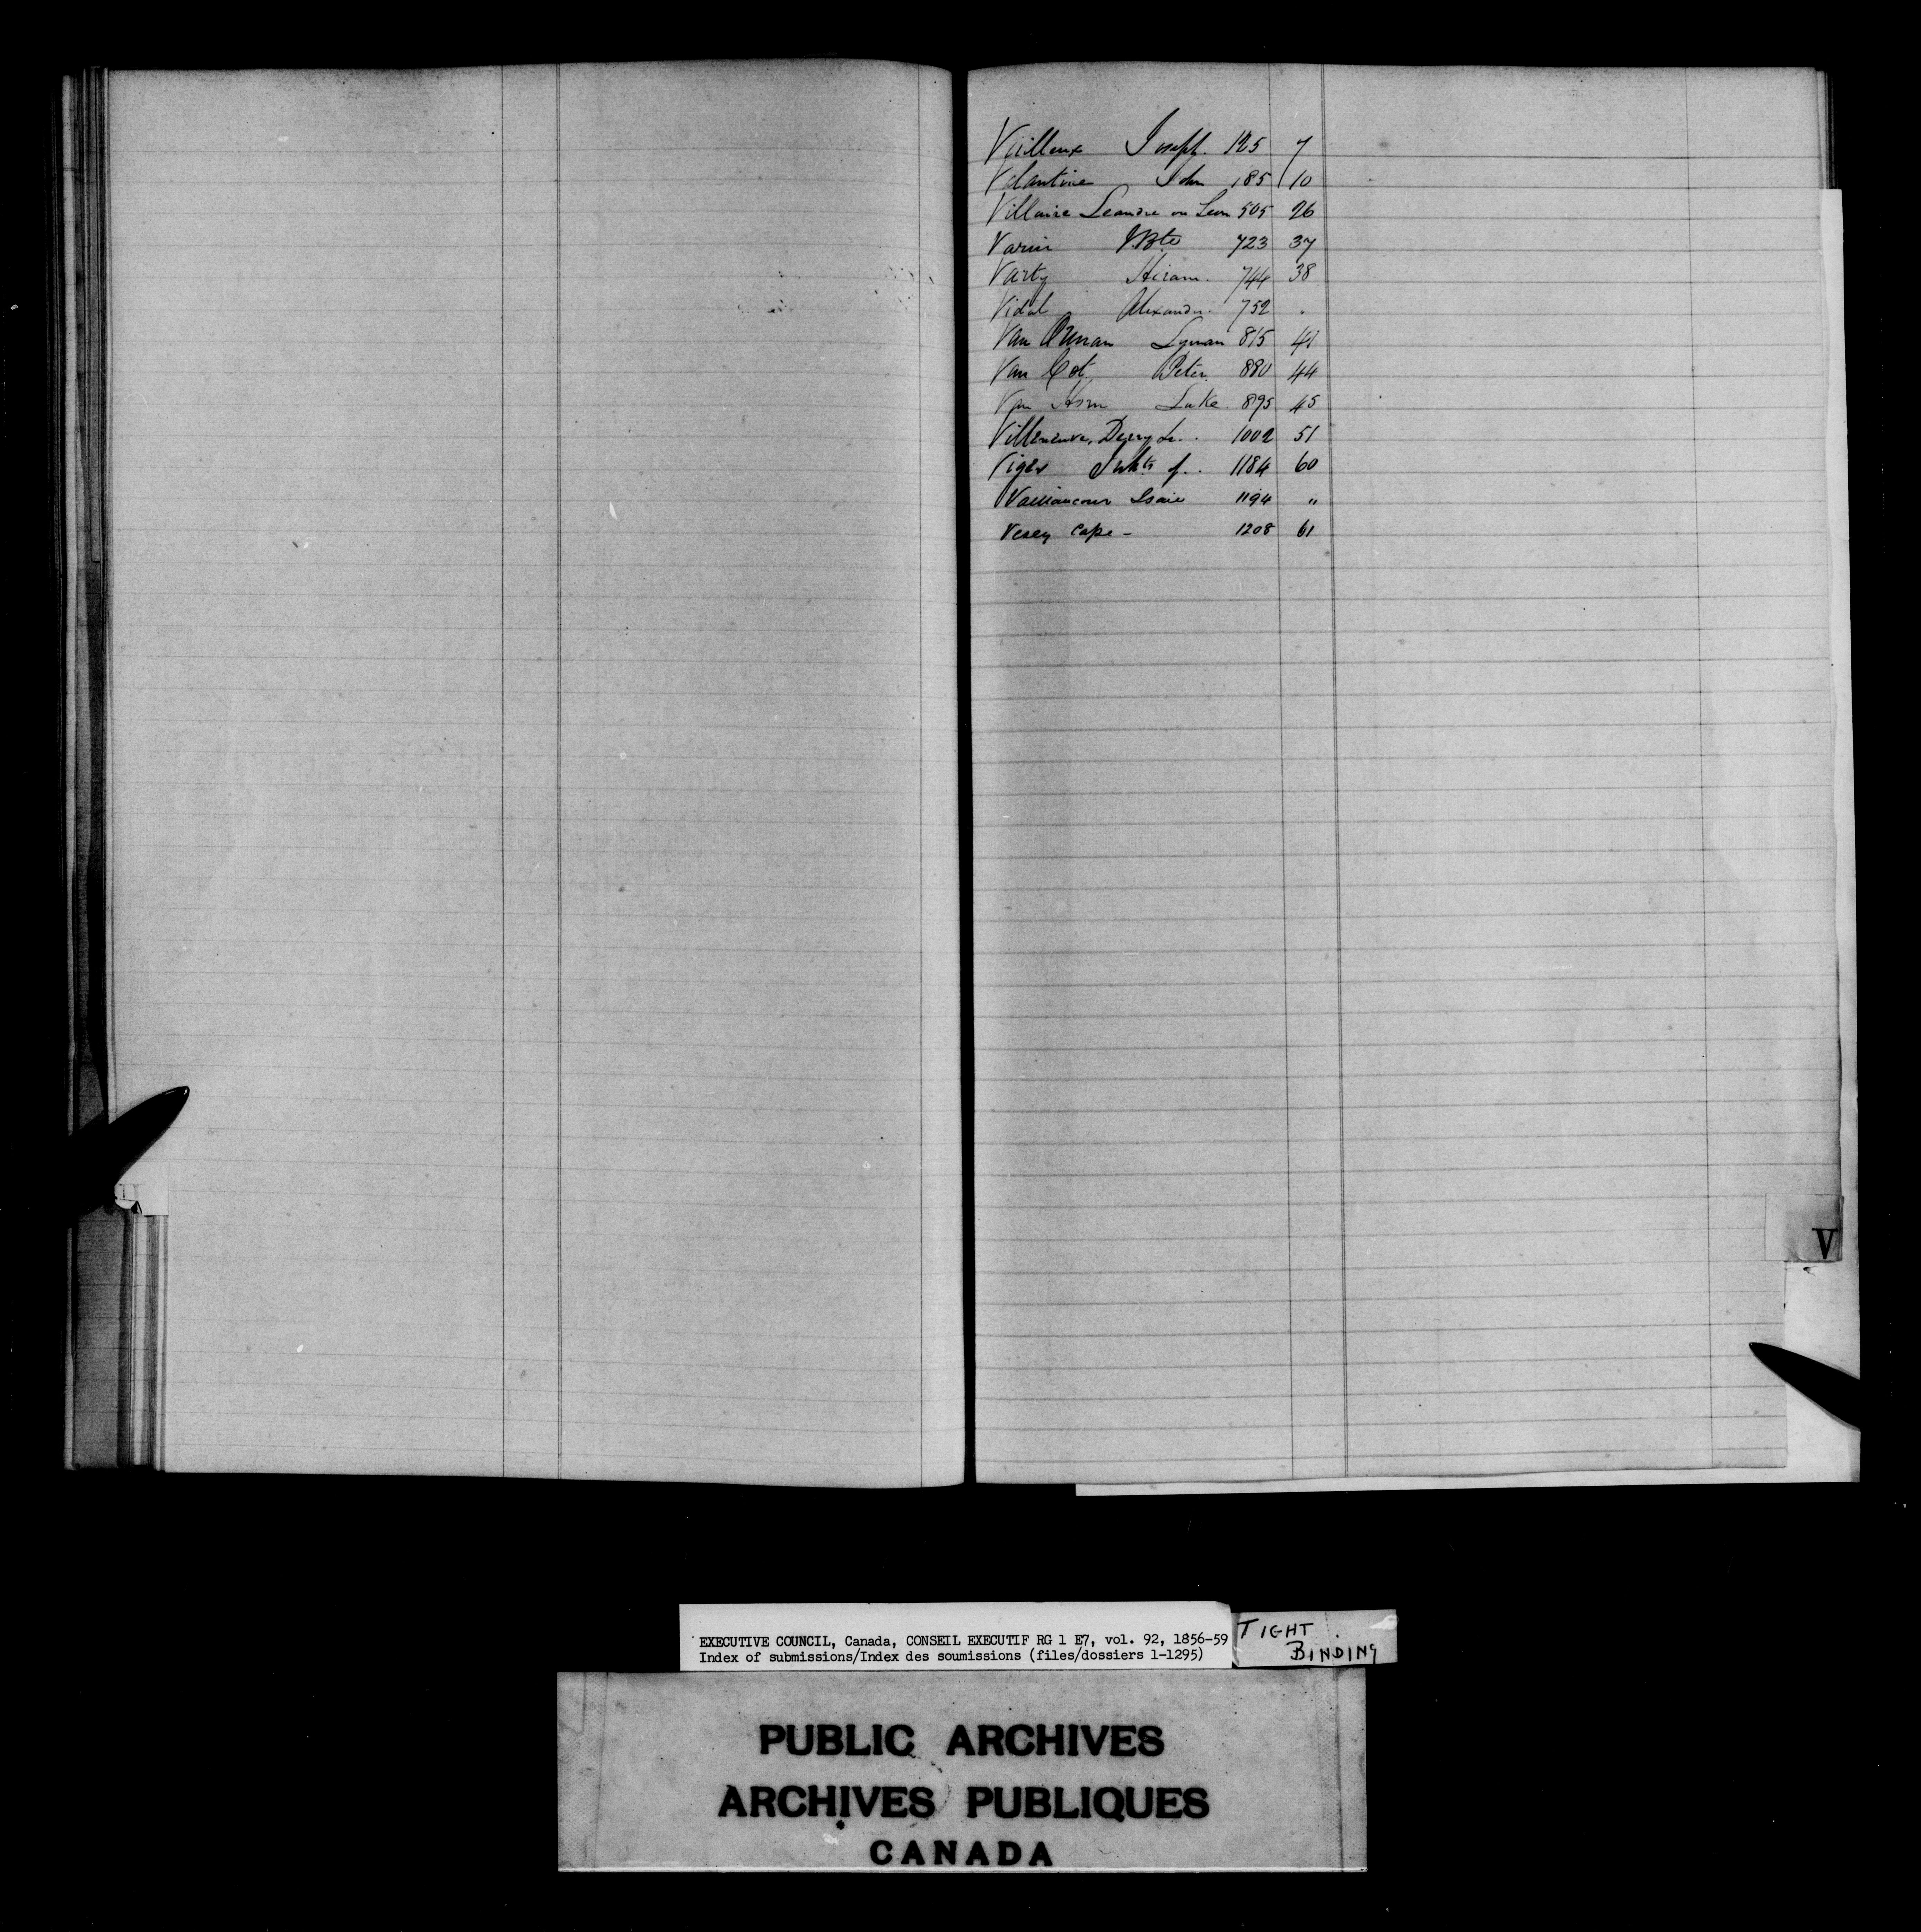 Veilleux Joseph. 125 7
Valantine John 185 10
Villaire Leandre ou Leon 505 26
Varin J. Bte 723 37
Varty Hiram. 744 38
Vidal Alexandre. 752 "
Van Lyman 815 41
Van Cot Peter. 880 44
Van Horn Luke. 895 45
Villeneuve, 1002 51
Viger of. 1184 60
Vaillancour Isaie 1194 "
Vesey Cape - 1208 61
V
EXECUTIVE COUNCIL, Canada, CONSEIL EXECUTIF RG 1 E7, vol. 92, 1856-59
Index of submissions/Index des soumissions (files/dossiers 1-1295)
TIGHT
BINDING
PUBLIC ARCHIVES
ARCHIVES PUBLIQUES
CANADA